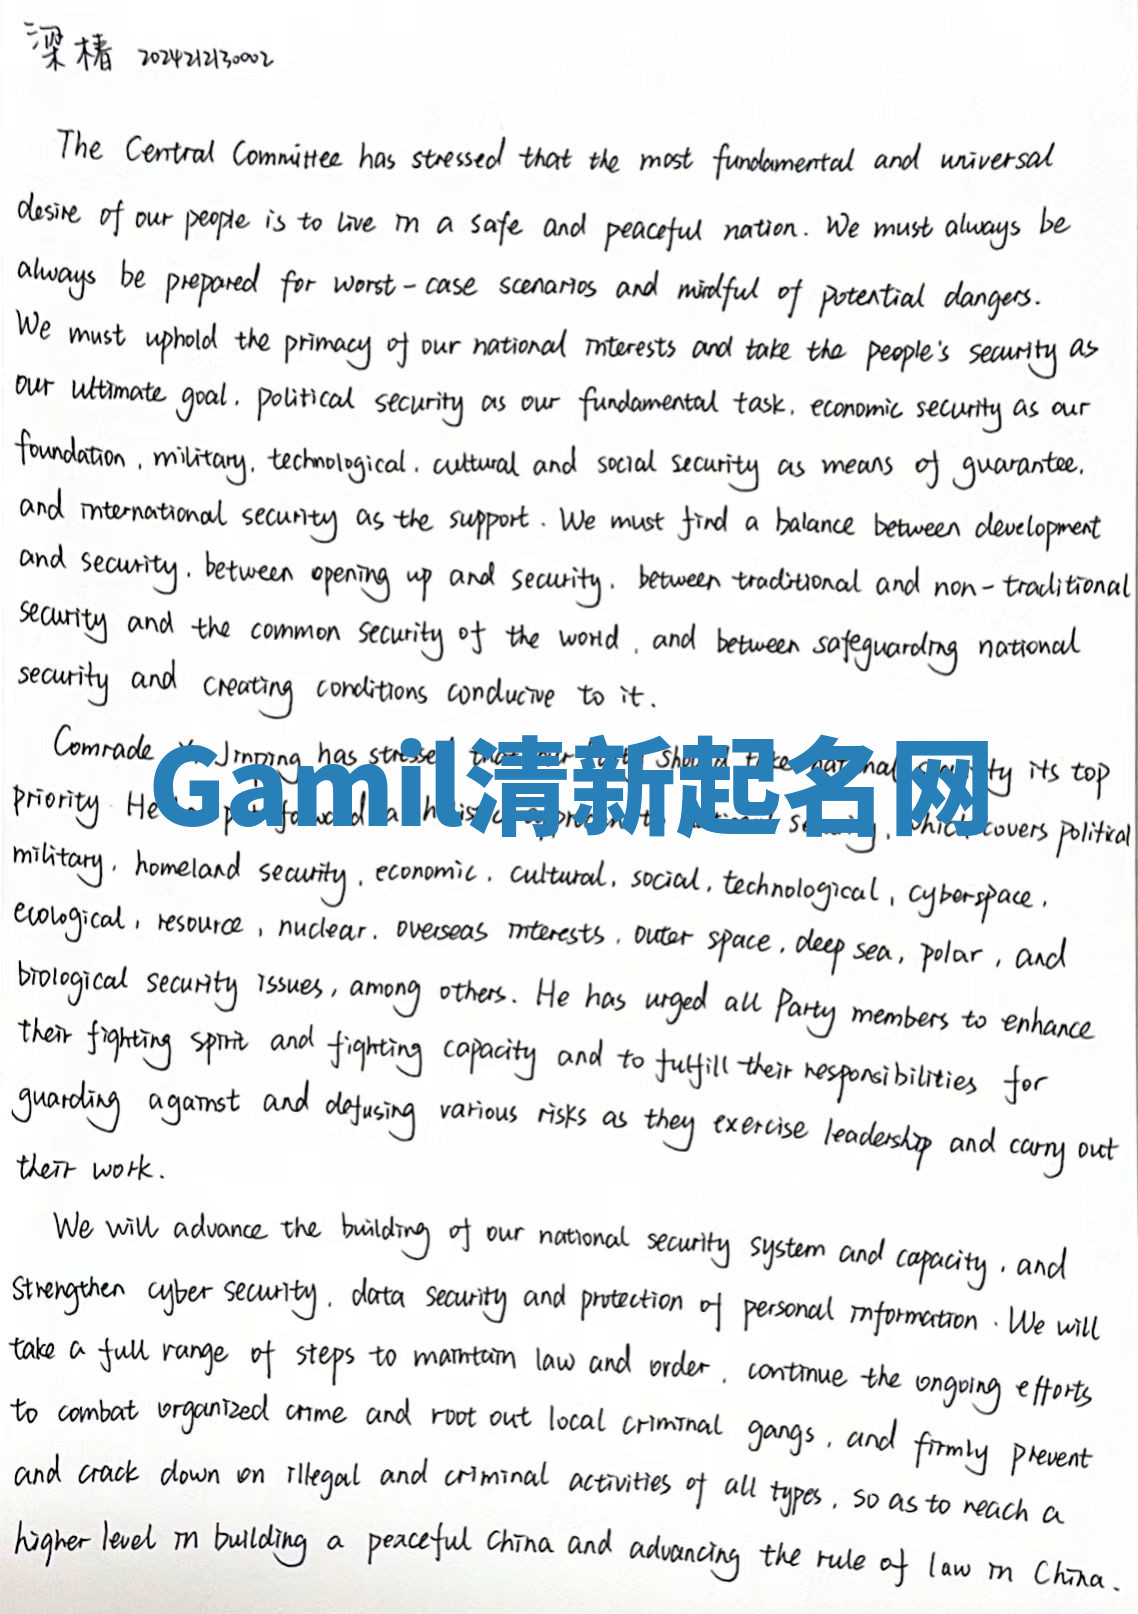 梁椿 2024212130002
The Central Committee has stressed that the most fundamental and universal
desire of our people is to live in a safe and peaceful nation. We must always be
always be prepared for worst-case scenarios and mindful of potential dangers.
We must uphold the primacy of our national interests and take the people's security as
our ultimate goal, political security as our fundamental task, economic security as our
foundation, military, technological, cultural and social security as means of guarantee,
and international security as the support. We must find a balance between development
and security, between opening up and security, between traditional and non-traditional
security and the common security of the world, and between safeguarding national
security and creating conditions conducive to it.
Comrade Jinping has stressed that our should take national its top
Gamil清新起名网
priority. He put forward a, which covers political
military, homeland security, economic, cultural, social, technological, cyberspace,
ecological, resource, nuclear, overseas interests, outer space, deep sea, polar, and
biological security issues, among others. He has urged all Party members to enhance
their fighting spirit and fighting capacity and to fulfill their responsibilities for
guarding against and defusing various risks as they exercise leadership and carry out
their work.
We will advance the building of our national security system and capacity, and
strengthen cyber security, data security and protection of personal information. We will
take a full range of steps to maintain law and order, continue the ongoing efforts
to combat organized crime and root out local criminal gangs, and firmly prevent
and crack down on illegal and criminal activities of all types, so as to reach a
higher level in building a peaceful China and advancing the rule of law in China.